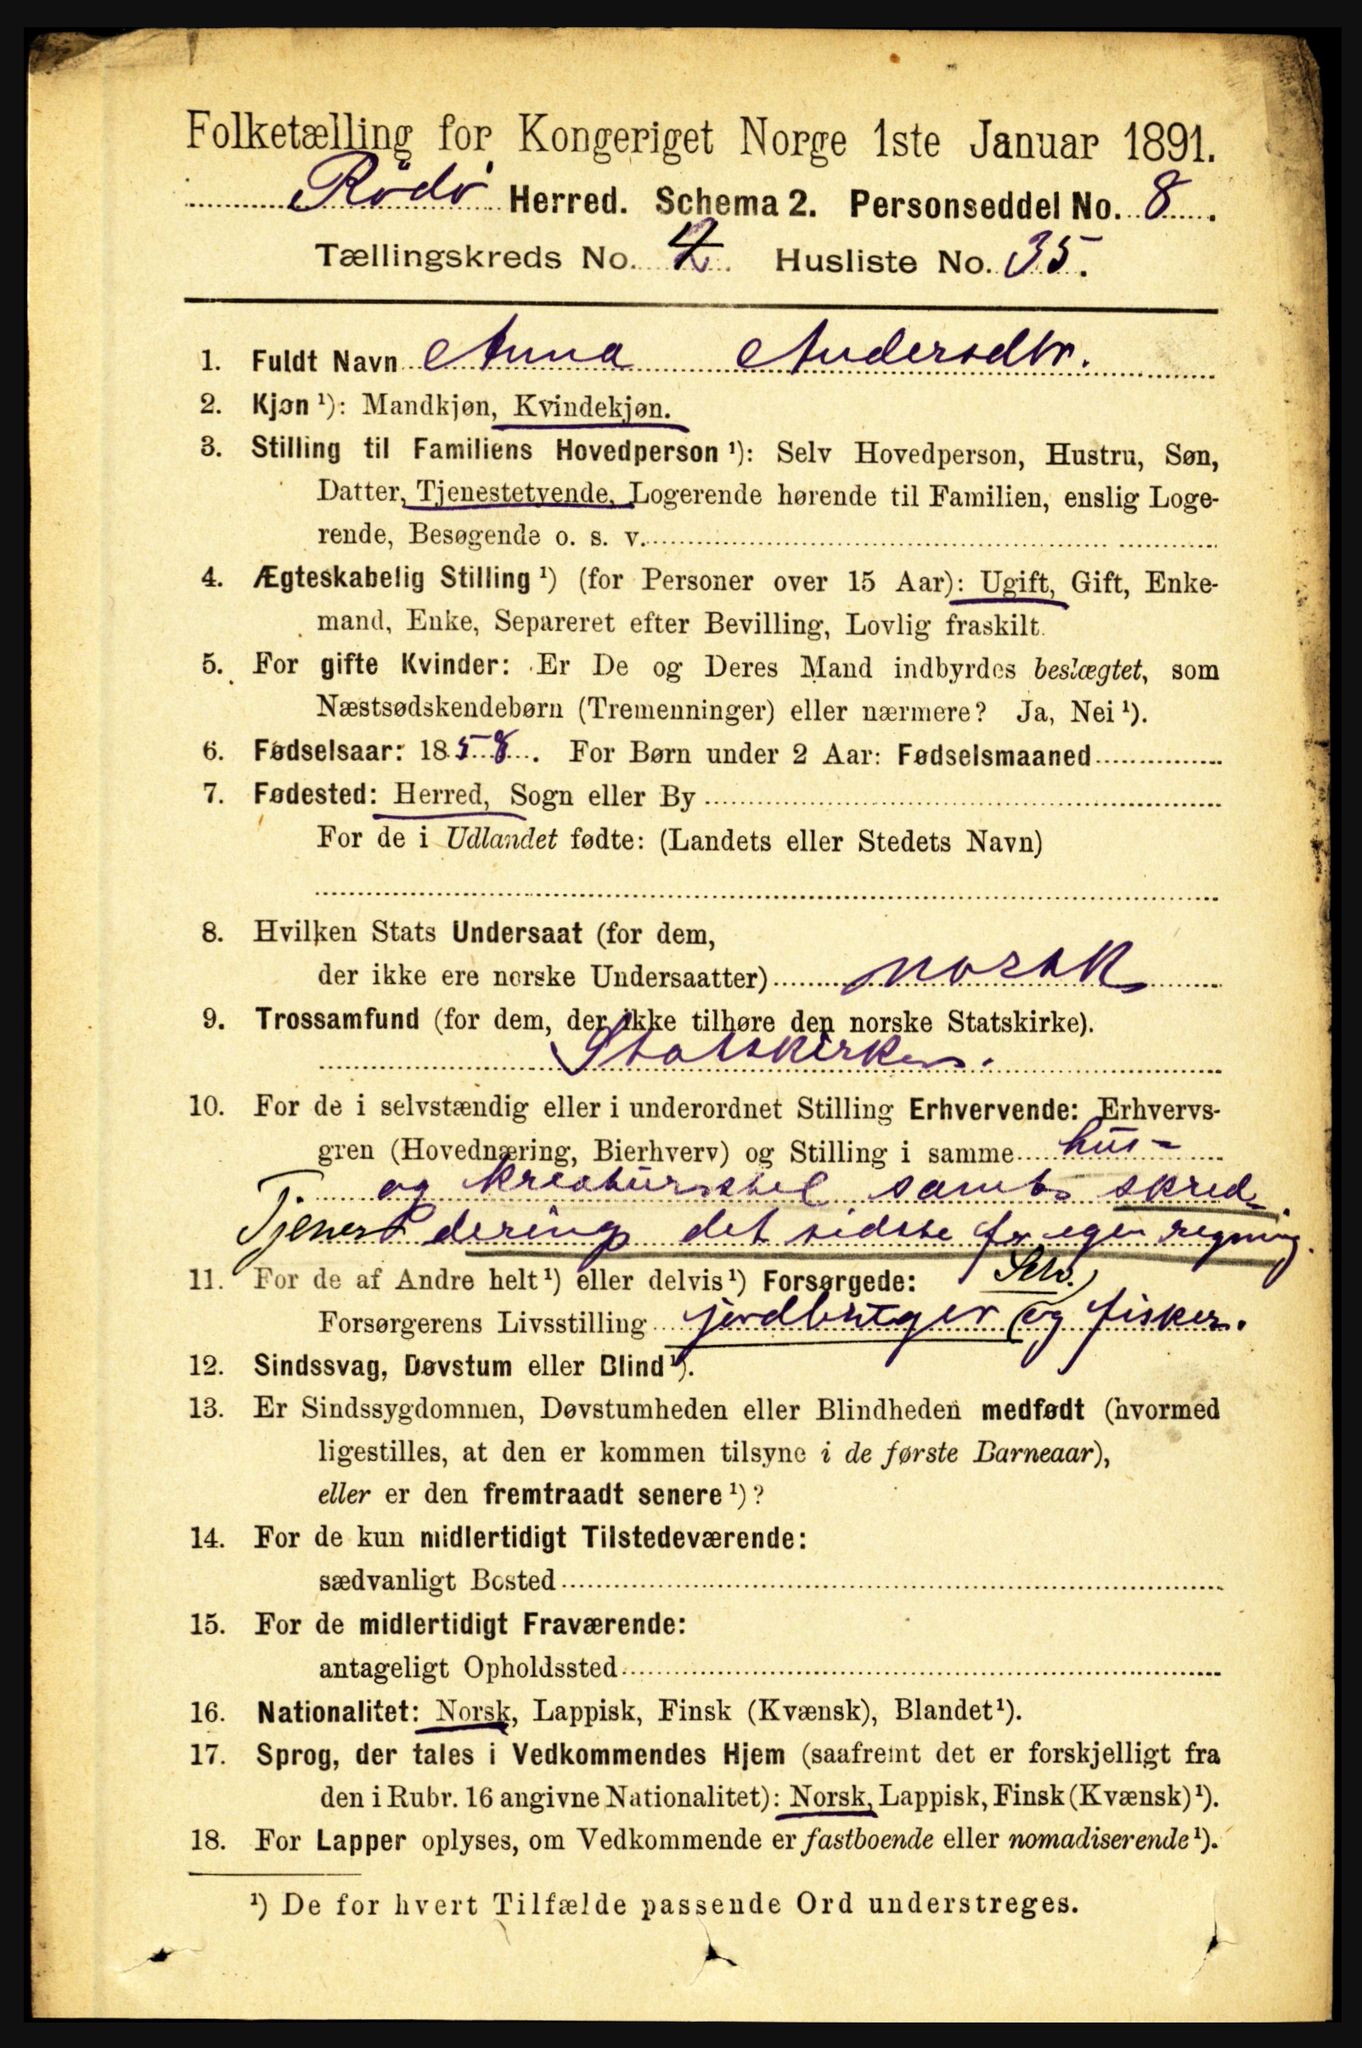 Folketælling for Kongeriget Norge 1ste Januar 1891.
Rødø Herred. Schema 2. Personseddel No. 8.
Tællingskreds No. 2. Husliste No. 35.
1. Fuldt Navn Anna Andersdtr.
2. Kjøn ¹): Mandkjøn, Kvindekjøn.
3. Stilling til Familiens Hovedperson ¹): Selv Hovedperson, Hustru, Søn,
Datter, Tjenestetyende, Logerende hørende til Familien, enslig Loge-
rende, Besøgende o. s. v.
4. Ægteskabelig Stilling ¹) (for Personer over 15 Aar): Ugift, Gift, Enke-
mand, Enke, Separeret efter Bevilling, Lovlig fraskilt.
5. For gifte Kvinder: Er De og Deres Mand indbyrdes beslægtet, som
Næstsødskendebørn (Tremenninger) eller nærmere? Ja, Nei ¹).
6. Fødselsaar: 1858. For Børn under 2 Aar: Fødselsmaaned
7. Fødested: Herred, Sogn eller By
For de i Udlandet fødte: (Landets eller Stedets Navn)
8. Hvilken Stats Undersaat (for dem,
der ikke ere norske Undersaatter) norsk
9. Trossamfund (for dem, der ikke tilhøre den norske Statskirke).
Statskirken.
10. For de i selvstændig eller i underordnet Stilling Erhvervende: Erhvervs-
gren (Hovednæring, Bierhverv) og Stilling i samme hus-
og kreaturstel samt skred-
Tjener dering det sidste fr egen regning.
11. For de af Andre helt ¹) eller delvis ¹) Forsørgede: Selv.
Forsørgerens Livsstilling jordbruger og fisker.
12. Sindssvag, Døvstum eller Blind ¹).
13. Er Sindssygdommen, Døvstumheden eller Blindheden medfødt (hvormed
ligestilles, at den er kommen tilsyne i de første Barneaar),
eller er den fremtraadt senere ¹)?
14. For de kun midlertidigt Tilstedeværende:
sædvanligt Bosted
15. For de midlertidigt Fraværende:
antageligt Opholdssted
16. Nationalitet: Norsk, Lappisk, Finsk (Kvænsk), Blandet ¹).
17. Sprog, der tales i Vedkommendes Hjem (saafremt det er forskjelligt fra
den i Rubr. 16 angivne Nationalitet): Norsk, Lappisk, Finsk (Kvænsk) ¹).
18. For Lapper oplyses, om Vedkommende er fastboende eller nomadiserende ¹).
¹) De for hvert Tilfælde passende Ord understreges.